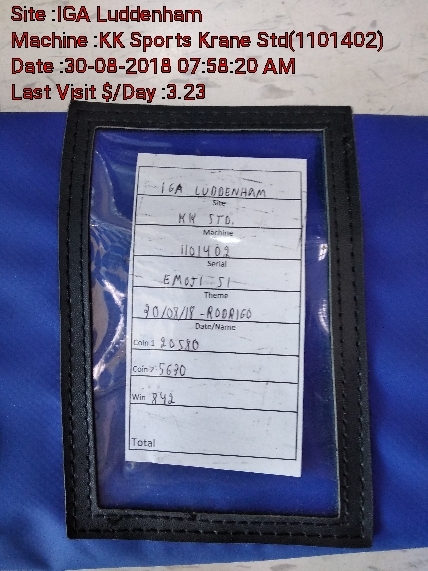 Site :IGA Luddenham
Machine :KK Sports Krane Std(1101402)
Date :30-08-2018 07:58:20 AM
Last Visit $/Day :3.23
IGA LUDDENHAM
Site
KK STD.
Machine
1101402
Serial
EMOJI-51
Theme
30/08/18-RODRIGO
Date/Name
Coin 1 20580
Coin 2 5630
Win 842
Total